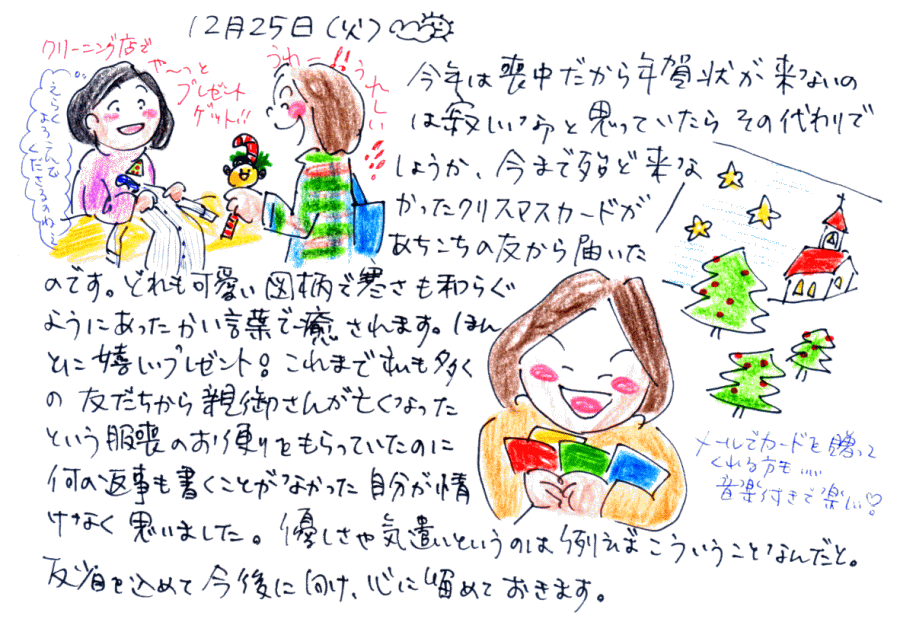 12月25日(火)
クリーニング店で
や〜っと
プレゼント
ゲット!!
うわー!!
うれしい!!!
えらく
よろこんで
くださるのねぇ
今年は喪中だから年賀状が来ないの
は寂しいなと思っていたらその代わりで
しょうか、今まで殆ど来な
かったクリスマスカードが
あちこちの友から届いた
のです。どれも可愛い図柄で寒さも和らぐ
ようにあったかい言葉で癒されます。ほん
とに嬉しいプレゼント。これまでもれも多く
の友だちから親御さんが亡くなった
という服喪のお便りをもらっていたのに
何の返事も書くことがなかった自分が情
けなく思いました。優しさや気遣いというのは例えばこういうことなんだと。
反省を込めて今後に向け、心に留めておきます。
メールでカードを贈って
くれる方も……
音楽付きで楽しい♡